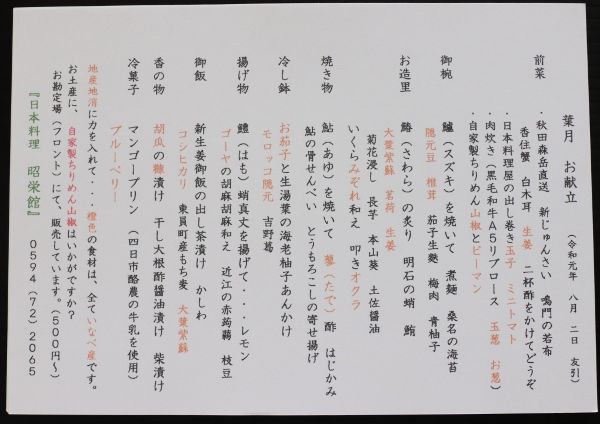 葉月　お献立　（令和元年　八月　二日　友引）
前菜　・秋田森岳直送　新じゅんさい　鳴門の若布
香住蟹　白木耳　生姜　二杯酢をかけてどうぞ
・日本料理屋の出し巻き玉子　ミニトマト
・肉炊き（黒毛和牛Ａ５リブロース　玉葱　お葱）
・自家製ちりめん山椒とピーマン
御椀　鱸（スズキ）を焼いて　煮麺　桑名の海苔
隠元豆　椎茸　茄子生麩　梅肉　青柚子
お造里　鰆（さわら）の炙り　明石の蛸　鮪
大葉紫蘇　茗荷　生姜
菊花浸し　長芋　本山葵　土佐醤油
いくらみぞれ和え　叩きオクラ
焼き物　鮎（あゆ）を焼いて　蓼（たで）酢　はじかみ
鮎の骨せんべい　とうもろこしの寄せ揚げ
冷し鉢　お茄子と生湯葉の海老柚子あんかけ
モロッコ隠元　吉野葛
揚げ物　鱧（はも）蛸真丈を揚げて・・・レモン
ゴーヤの胡麻胡麻和え　近江の赤蒟蒻　枝豆
御飯　新生姜御飯の出し茶漬け　かしわ
コシヒカリ　東員町産もち麦　大葉紫蘇
香の物　胡瓜の糠漬け　干し大根酢醤油漬け　柴漬け
冷菓子　マンゴープリン　（四日市酪農の牛乳を使用）
ブルーベリー
地産地消に力を入れて・・・橙色の食材は、全ていなべ産です。
お土産に、自家製ちりめん山椒はいかがですか？
お勘定場（フロント）にて、販売しています。（５００円～）
『日本料理　昭栄館』　０５９４（７２）２０６５